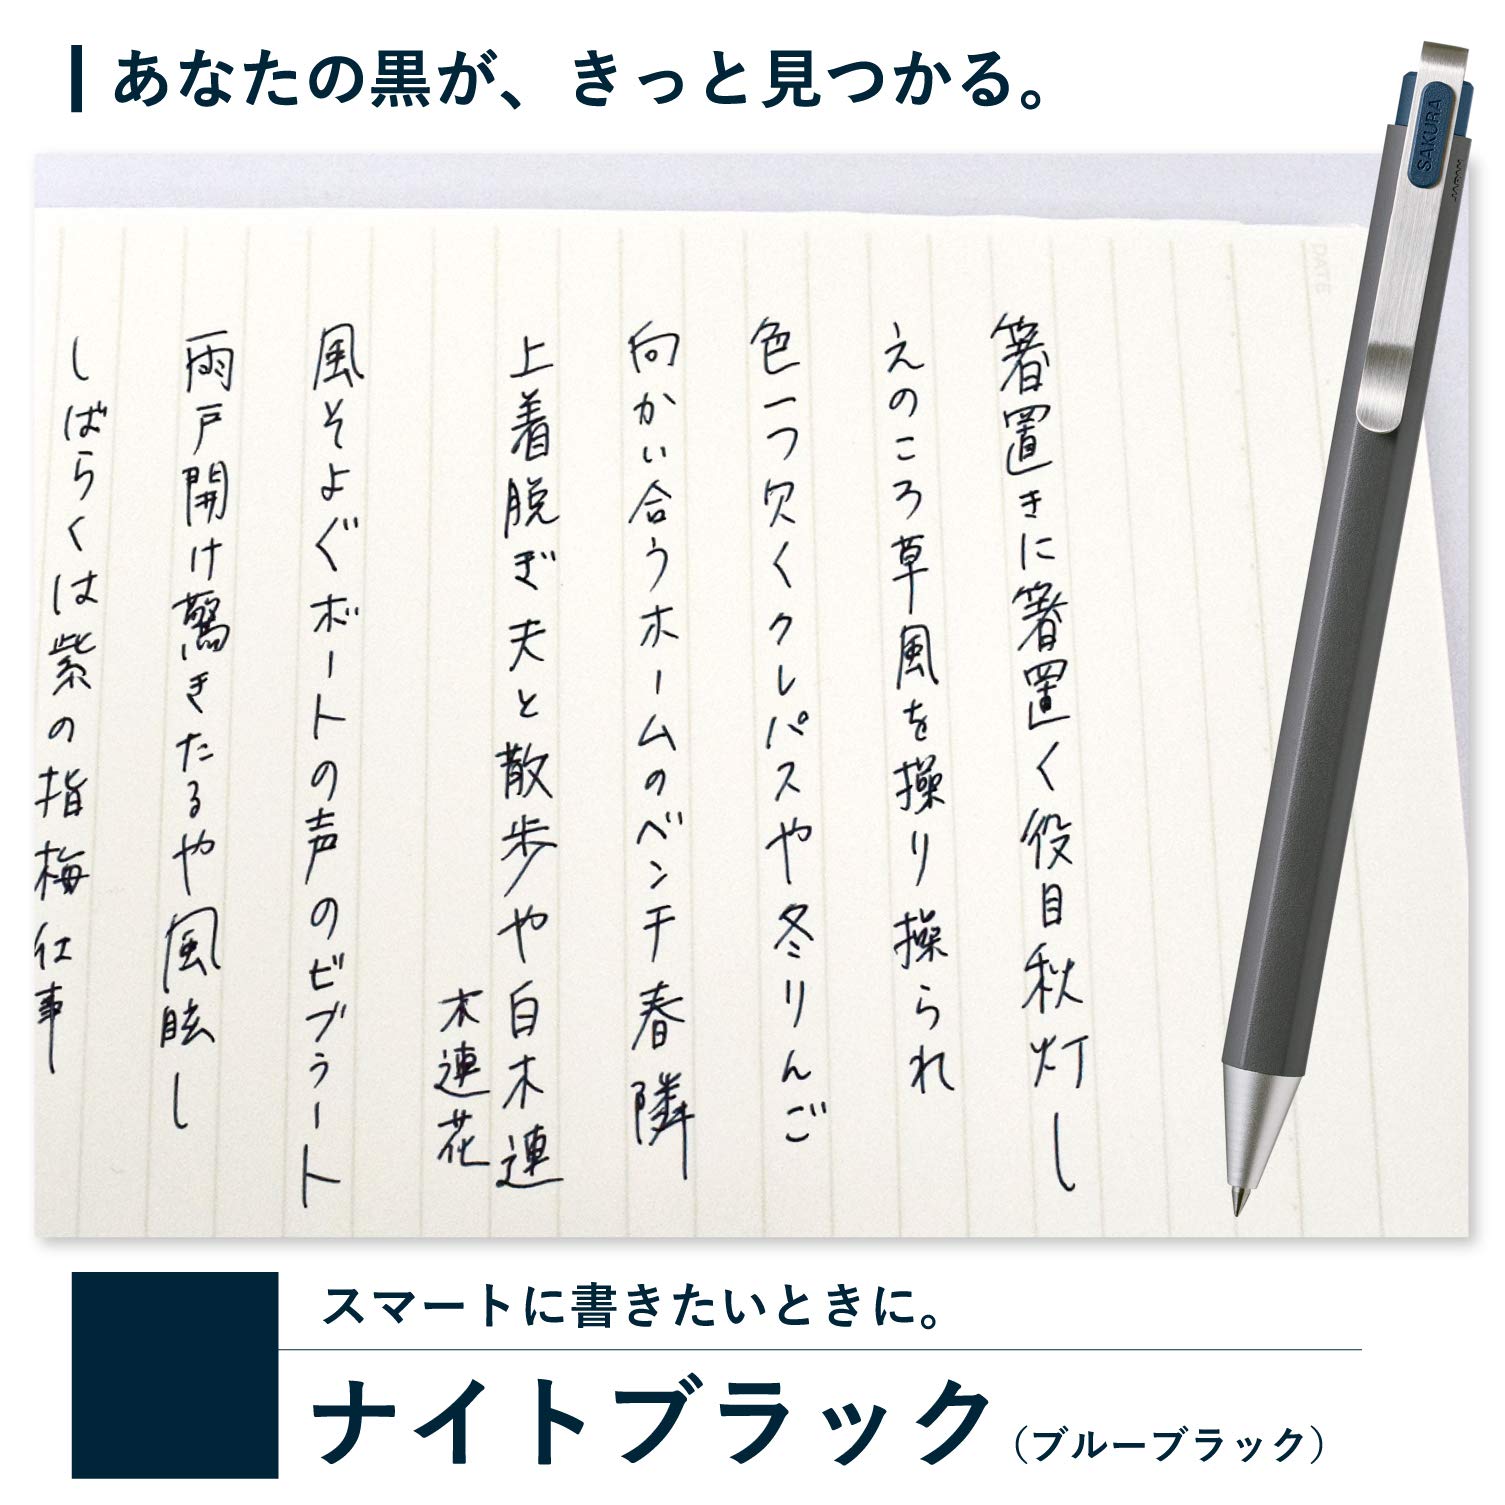 あなたの黒が、きっと見つかる。
SAKURA
DATE
箸置きに箸置く役目秋灯し
えのころ草風を操り操られ
色一つ欠くクレパスや冬りんご
向かい合うホームのベンチ春隣
上着脱ぎ夫と散歩や白木連
木連花
風そよぐボートの声のビブラート
雨戸開け驚きたるや風眩し
しばらくは紫の指梅仕事
スマートに書きたいときに。
ナイトブラック（ブルーブラック）